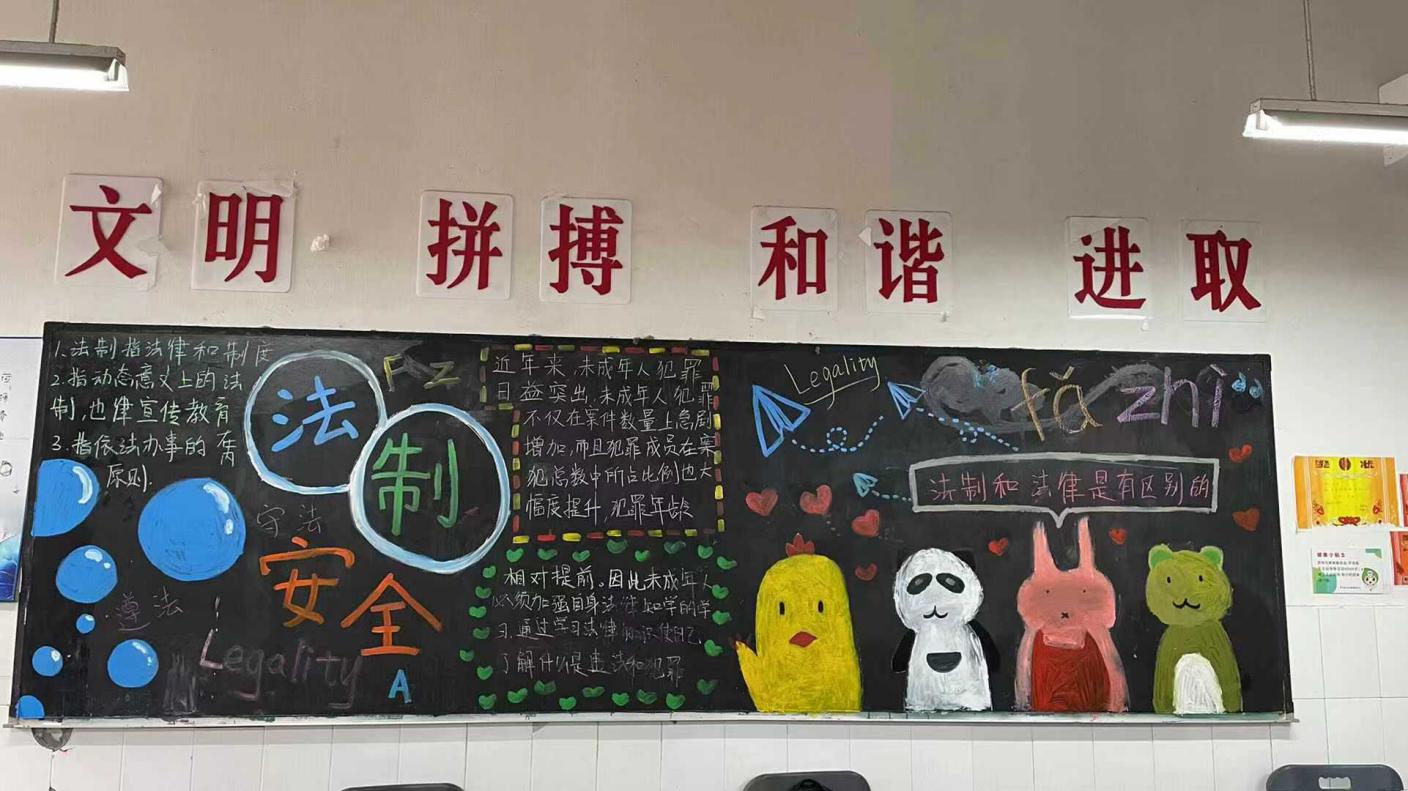 文明 拼搏 和谐 进取
1.法制指法律和制度
2.指动态意义上的法
制,也律宣传教育
3.指依法办事的
原则.
法
制
F Z
守法
安全
遵法
Legality
A
近年来,未成年人犯罪
日益突出,未成年人犯罪
不仅在案件数量上急剧
增加,而且犯罪成员在案
犯总数中所占比例也大
幅度提升,犯罪年龄
相对提前。因此未成年人
必须加强自身法律知学的学
习,通过学习法律知识使自己
了解什么是违法和犯罪
Legality
fǎ zhì
法制和法律是有区别的
奖 状